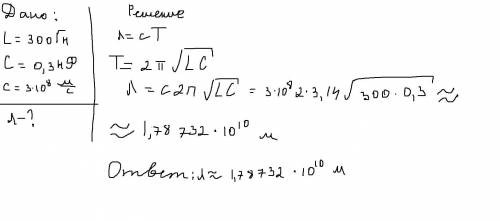 Дано:
L = 300 Гн
C = 0,3 нФ
c = 3·10⁸ м/с
Λ - ?
Решение
Λ = cT
T = 2π √LC
Λ = c2π √LC = 3·10⁸ 2·3,14 √300·0,3 ≈
≈ 1,78732·10¹⁰ м
Ответ: Λ ≈ 1,78732·10¹⁰ м